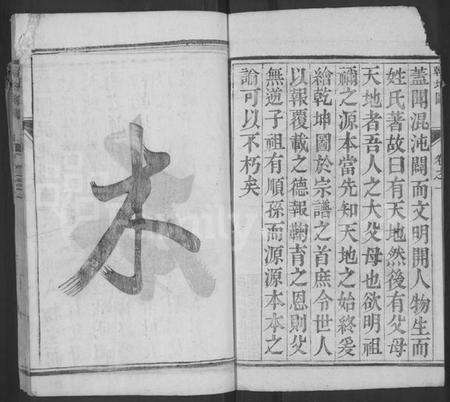 蓋聞混沌闢而文明開人物生而
姓氏著故曰有天地然後有父母
天地者吾人之大父母也欲明祖
禰之源本當先知天地之始終爰
繪乾坤圖於宗譜之首庶令世人
以報覆載之德報鞠育之恩則父
無逆子祖有順孫而源源本本之
諭可以不朽矣
卷之一
本